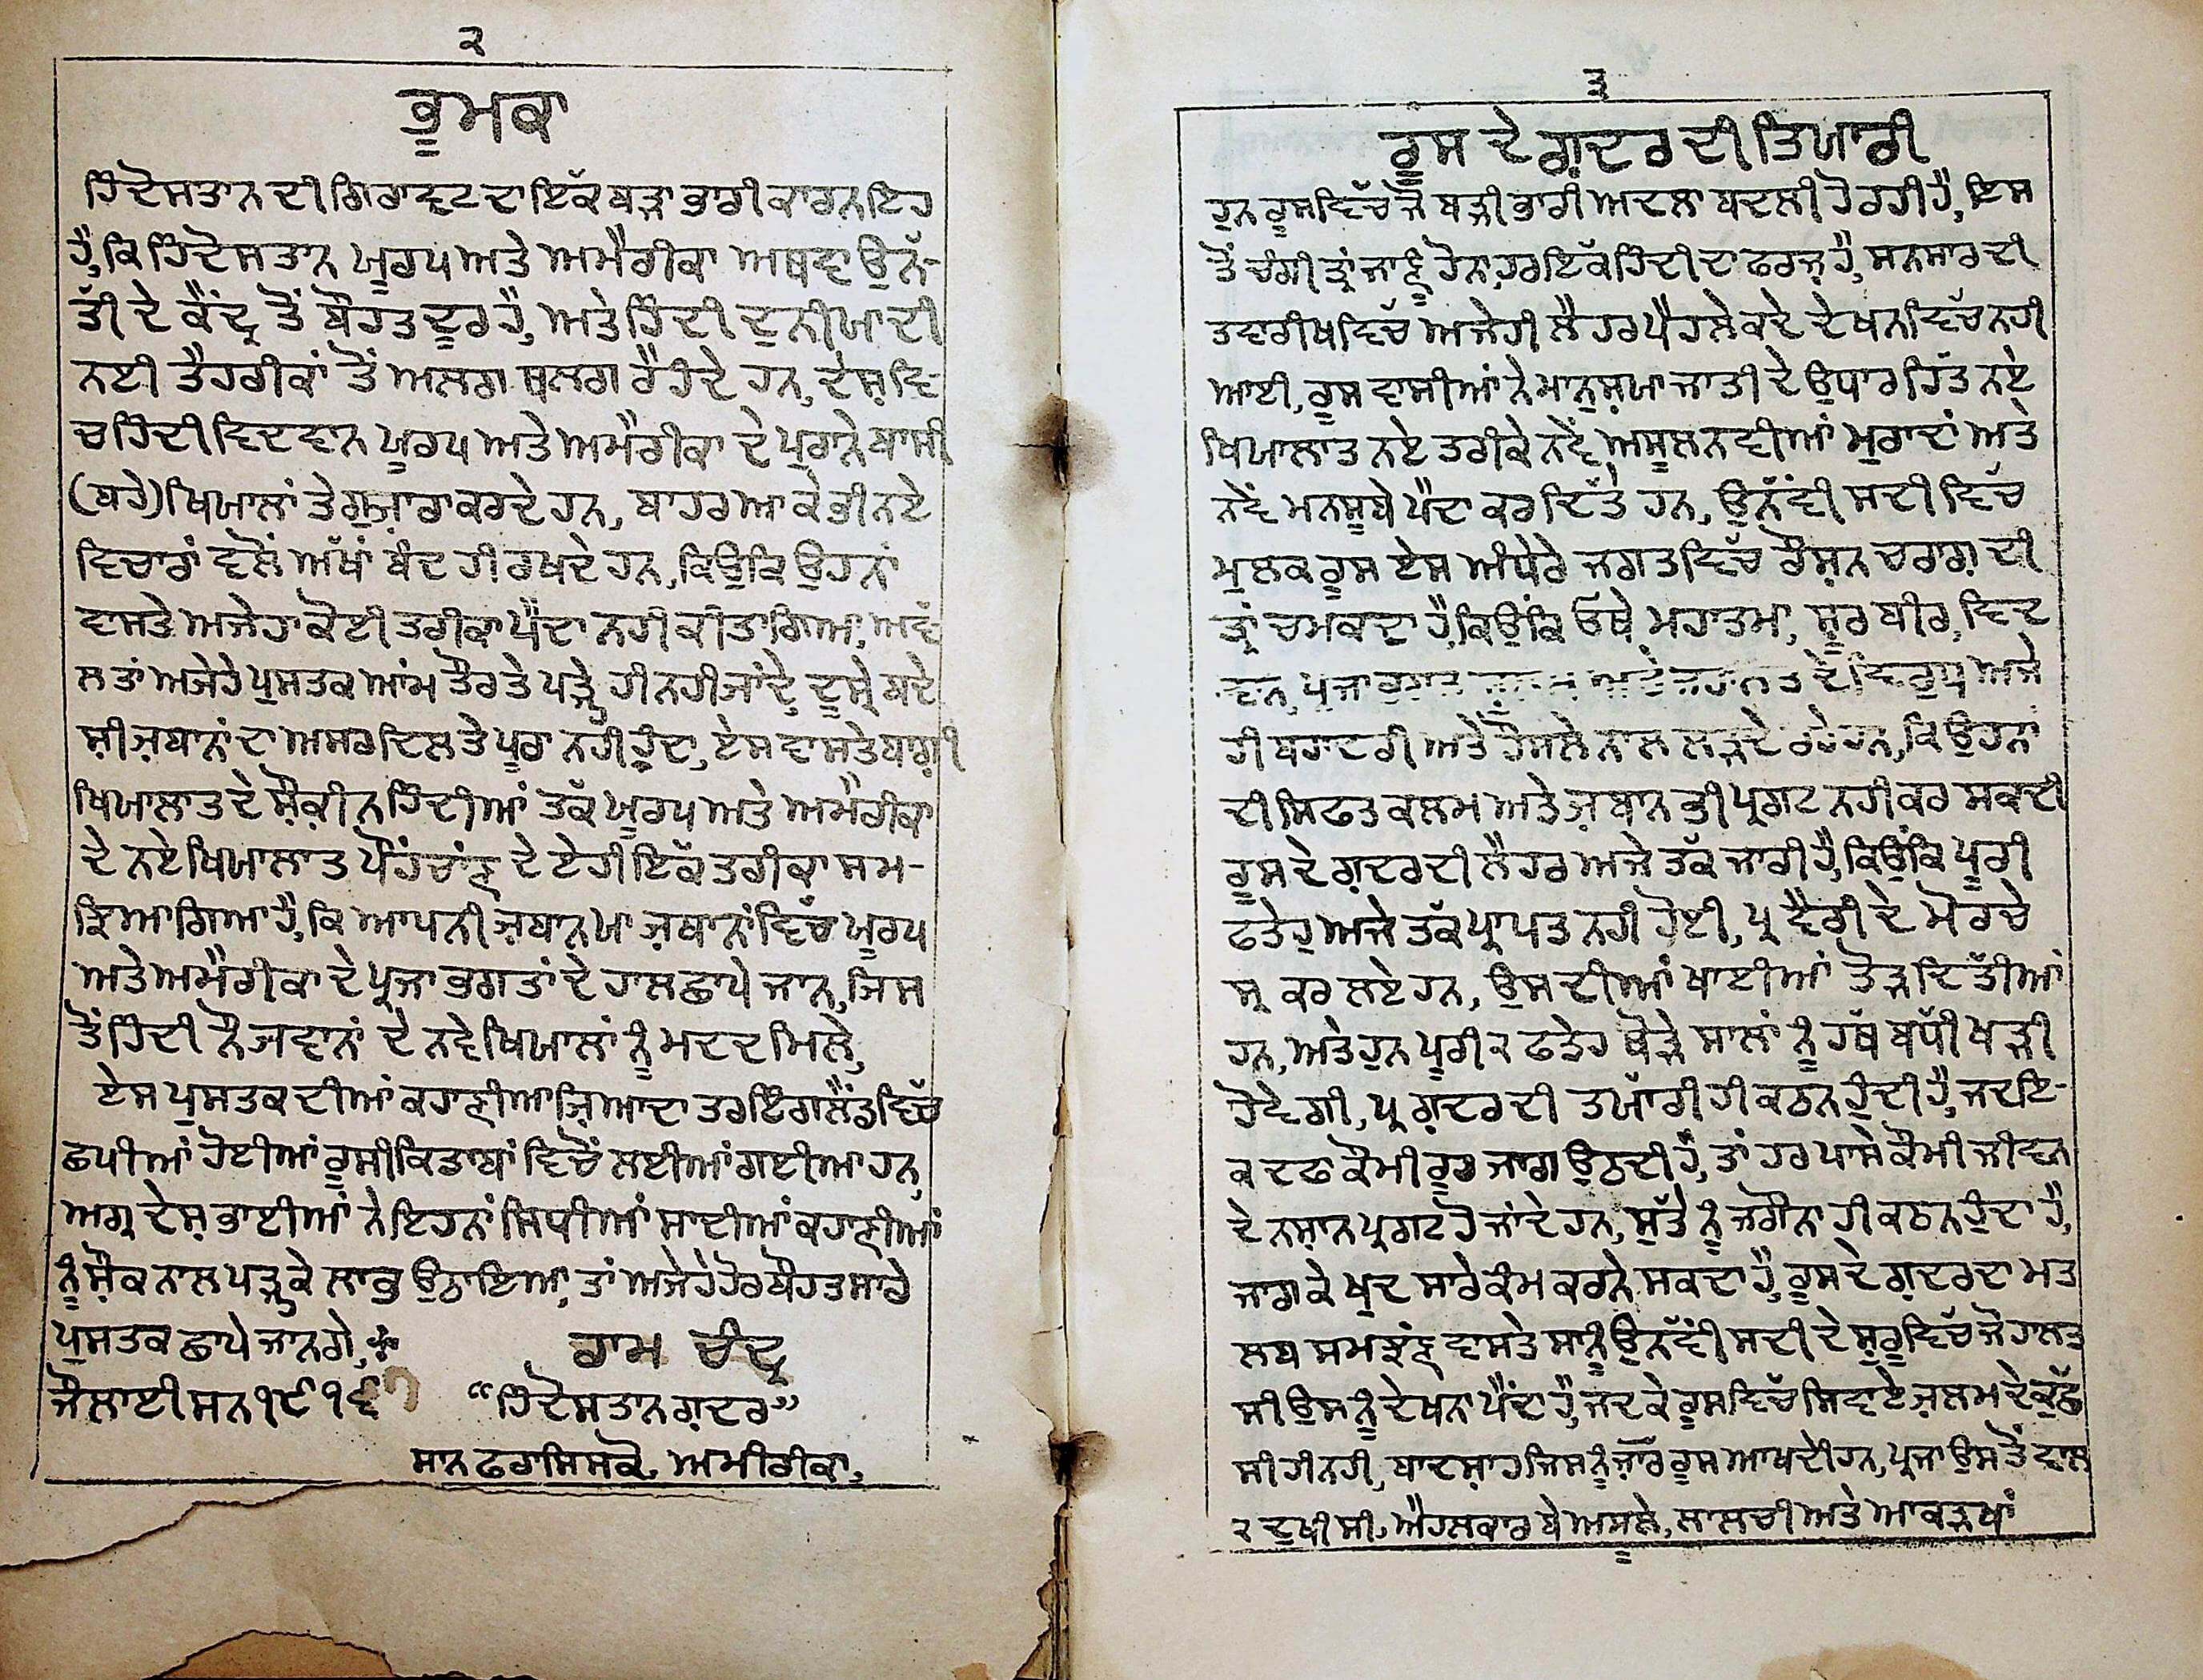 ੨
ਭੂਮਕਾ
ਹਿੰਦੋਸਤਾਨ ਦੀ ਗਿਰਾਵਟ ਦਾ ਇੱਕ ਬੜਾ ਭਾਰੀ ਕਾਰਨ ਇਹ
ਹੈ, ਕਿ ਹਿੰਦੋਸਤਾਨ ਯੂਰਪ ਅਤੇ ਅਮੈਰੀਕਾ ਅਥਵਾ ਉਨੱ-
ਤੀ ਦੇ ਕੈਂਦ੍ਰ ਤੋਂ ਬੌਹਤ ਦੂਰ ਹੈ, ਅਤੇ ਹਿੰਦੀ ਦੁਨੀਯਾ ਦੀ
ਨਈ ਤੈਹਰੀਕਾਂ ਤੋਂ ਅਲਗ ਥਲਗ ਰੈਹਿੰਦੇ ਹਨ, ਦੇਸ਼ ਵਿ-
ਚ ਹਿੰਦੀ ਵਿਦਵਾਨ ਯੂਰਪ ਅਤੇ ਅਮੈਰੀਕਾ ਦੇ ਪੁਰਾਨੇ ਬਾਸੀ
(ਬਹੇ) ਖਿਯਾਲਾਂ ਤੇ ਗੁਜ਼ਾਰਾ ਕਰਦੇ ਹਨ, ਬਾਹਰ ਆਕੇ ਭੀ ਨਏ
ਵਿਚਾਰਾਂ ਵਲੋਂ ਅੱਖਾਂ ਬੰਦ ਹੀ ਰਖਦੇ ਹਨ, ਕਿਉਂਕਿ ਉਹਨਾਂ
ਵਾਸਤੇ ਅਜੇਹਾ ਕੋਈ ਤਰੀਕਾ ਪੈਦਾ ਨਹੀ ਕੀਤਾ ਗਿਆ, ਅਵੱ
ਲ ਤਾਂ ਅਜੇਹੇ ਪੁਸਤਕ ਆਂਮ ਤੌਰ ਤੇ ਪੜ੍ਹੇ ਹੀ ਨਹੀ ਜਾਂਦੇ, ਦੂਸ੍ਰੇ ਬਦੇ
ਸ਼ੀ ਜ਼ਬਾਨਾਂ ਦਾ ਅਸਰ ਦਿਲ ਤੇ ਪੂਰਾ ਨਹੀ ਹੁੰਦਾ, ਏਸ ਵਾਸਤੇ ਬਾਗ਼ੀ
ਖਿਯਾਲਾਤ ਦੇ ਸ਼ੌਕ਼ੀਨ ਹਿੰਦੀਆਂ ਤੱਕ ਯੂਰਪ ਅਤੇ ਅਮੈਰੀਕਾ
ਦੇ ਨਏ ਖਿਯਾਲਾਤ ਪੌਂਹਚਾਂਣ ਦੇ ਏਹੀ ਇੱਕ ਤਰੀਕਾ ਸਮ-
ਝਿਆ ਗਿਆ ਹੈ, ਕਿ ਆਪਨੀ ਜ਼ਬਾਨ ਯਾ ਜ਼ਬਾਨਾਂ ਵਿੱਚ ਯੂਰਪ
ਅਤੇ ਅਮੈਰੀਕਾ ਦੇ ਪ੍ਰਜਾ ਭਗਤਾਂ ਦੇ ਹਾਲ ਛਾਪੇ ਜਾਨ, ਜਿਸ
ਤੋਂ ਹਿੰਦੀ ਨੌਜਵਾਨਾਂ ਦੇ ਨਵੇ ਖਿਯਾਲਾਂ ਨੂੰ ਮਦਦ ਮਿਲੇ,
ਏਸ ਪੁਸਤਕ ਦੀਆਂ ਕਹਾਣੀਆ ਜ਼ਿਆਦਾ ਤਰ ਇੰਗਲੈਂਡ ਵਿੱਚ
ਛਪੀਆਂ ਹੋਈਆਂ ਰੂਸੀ ਕਿਤਾਬਾਂ ਵਿਚੋਂ ਲਈਆਂ ਗਈਆ ਹਨ,
ਅਗ੍ਰ ਦੇਸ਼ ਭਾਈਆਂ ਨੇ ਇਹਨਾਂ ਸਿਧੀਆਂ ਸਾਦੀਆਂ ਕਹਾਣੀਆਂ
ਨੂੰ ਸ਼ੌਕ ਨਾਲ ਪੜ੍ਹਕੇ ਲਾਭ ਉਠਾਇਆ, ਤਾਂ ਅਜੇਹੇ ਹੋਰ ਬੌਹਤ ਸਾਰੇ
ਪੁਸਤਕ ਛਾਪੇ ਜਾਨਗੇ,
ਰਾਮ ਚੰਦ੍ਰ
ਜੌਲਾਈ ਸਨ ੧੯੧੬
"ਹਿੰਦੋਸਤਾਨ ਗ਼ਦਰ"
ਸਾਨ ਫਰਾਸਿਸਕੋ, ਅਮੀਰੀਕਾ,
੩
ਰੂਸ ਦੇ ਗ਼ਦਰ ਦੀ ਤਿਯਾਰੀ
ਹੁਨ ਰੂਸ ਵਿੱਚ ਜੋ ਬੜੀ ਭਾਰੀ ਅਦਲਾ ਬਦਲੀ ਹੋ ਰਹੀ ਹੈ, ਇਸ
ਤੋਂ ਚੰਗੀ ਤ੍ਰਾਂ ਜਾਣੂੰ ਹੋਨਾ, ਹਰ ਇੱਕ ਹਿੰਦੀ ਦਾ ਫਰਜ਼ ਹੈ, ਸਨਸਾਰ ਦੀ
ਤਵਾਰੀਖ ਵਿੱਚ ਅਜੇਹੀ ਲੈਹਰ ਪੈਹਲੇ ਕਦੇ ਦੇਖਨ ਵਿੱਚ ਨਹੀ
ਆਈ, ਰੂਸ ਵਾਸੀਆਂ ਨੇ ਮਾਨੁਸ਼ਯਾ ਜਾਤੀ ਦੇ ਉਧਾਰ ਹਿੱਤ ਨਏ
ਖਿਯਾਲਾਤ ਨਏ ਤਰੀਕੇ ਨਵੇਂ ਅਸੂਲ ਨਵੀਆਂ ਮੁਰਾਦਾਂ ਅਤੇ
ਨਵੇਂ ਮਨਸੂਬੇ ਪੈਦਾ ਕਰ ਦਿੱਤੇ ਹਨ, ਉਨੱਵੀਂ ਸਦੀ ਵਿੱਚ
ਮੁਲਕ ਰੂਸ ਏਸ ਅੰਧੇਰੇ ਜਗਤ ਵਿੱਚ ਰੌਸ਼ਨ ਚਰਾਗ਼ ਦੀ
ਤ੍ਰਾਂ ਚਮਕਦਾ ਹੈ, ਕਿਉਂਕਿ ਓਥੇ ਮਹਾਤਮਾ, ਸੂਰਬੀਰ, ਵਿਦ
ਵਾਨ, ਪ੍ਰਜਾ ਦੇ ਵਿਰੁਧ ਅਜੇ
ਹੀ ਬਹਾਦਰੀ ਅਤੇ ਹੌਸਲੇ ਨਾਲ ਲੜਦੇ ਰਹੇ ਹਨ, ਕਿ ਉਹਨਾਂ
ਦੀ ਸਿਫਤ ਕਲਮ ਅਤੇ ਜ਼ਬਾਨ ਭੀ ਪ੍ਰਗਟ ਨਹੀ ਕਰ ਸਕਦੀ
ਰੂਸ ਦੇ ਗ਼ਦਰ ਦੀ ਲੈਹਰ ਅਜੇ ਤੱਕ ਜਾਰੀ ਹੈ, ਕਿਉਂਕਿ ਪੂਰੀ
ਫਤੇਹ ਅਜੇ ਤੱਕ ਪ੍ਰਾਪਤ ਨਹੀ ਹੋਈ, ਪ੍ਰ ਵੈਰੀ ਦੇ ਮੋਰਚੇ
ਸ੍ਰ ਕਰ ਲਏ ਹਨ, ਉਸ ਦੀਆਂ ਖਾਈਆਂ ਤੋੜ ਦਿੱਤੀਆਂ
ਹਨ, ਅਤੇ ਹੁਨ ਪੂਰੀ ੨ ਫਤੇਹ ਥੋੜੇ ਸਾਲਾਂ ਨੂੰ ਹੱਥ ਬਧੀ ਖੜੀ
ਹੋਵੇਗੀ, ਪ੍ਰ ਗ਼ਦਰ ਦੀ ਤਯਾੱਰੀ ਹੀ ਕਠਨ ਹੁੰਦੀ ਹੈ, ਜਦ ਇ-
ਕ ਦਫ ਕੌਮੀ ਰੂਹ ਜਾਗ ਉਠਦੀ ਹੈ, ਤਾਂ ਹਰ ਪਾਸੇ ਕੌਮੀ ਜੀਵਨ
ਦੇ ਨਸ਼ਾਨ ਪ੍ਰਗਟ ਹੋ ਜਾਂਦੇ ਹਨ, ਸੁੱਤੇ ਨੂੰ ਜਗੌਨਾ ਹੀ ਕਠਨ ਹੁੰਦਾ ਹੈ,
ਜਾਗ ਕੇ ਖੁਦ ਸਾਰੇ ਕੰਮ ਕਰਨੇ ਸਕਦਾ ਹੈ, ਰੂਸ ਦੇ ਗ਼ਦਰ ਦਾ ਮਤ
ਲਬ ਸਮਝੰਣ ਵਾਸਤੇ ਸਾਨੂੰ ਉਨੱਵੀਂ ਸਦੀ ਦੇ ਸ਼ੁਰੂ ਵਿੱਚ ਜੋ ਹਾਲਤ
ਸੀ ਉਸ ਨੂੰ ਦੇਖਨਾ ਪੈਂਦਾ ਹੈ, ਜਦ ਕੇ ਰੂਸ ਵਿੱਚ ਸਿਵਾਏ ਜ਼ੁਲਮ ਦੇ ਕੁੱਛ
ਸੀ ਹੀ ਨਹੀ, ਬਾਦਸ਼ਾਹ ਜਿਸ ਨੂੰ ਜ਼ਾਰ ਰੂਸ ਆਖਦੇ ਹਨ, ਪ੍ਰਜਾ ਉਸ ਤੋਂ ਵਾਲ
੨ ਦੁਖੀ ਸੀ, ਐਹਲਕਾਰ ਬੇ ਅਸੂਲੇ, ਲਾਲਚੀ ਅਤੇ ਆਕੜਖਾਂ